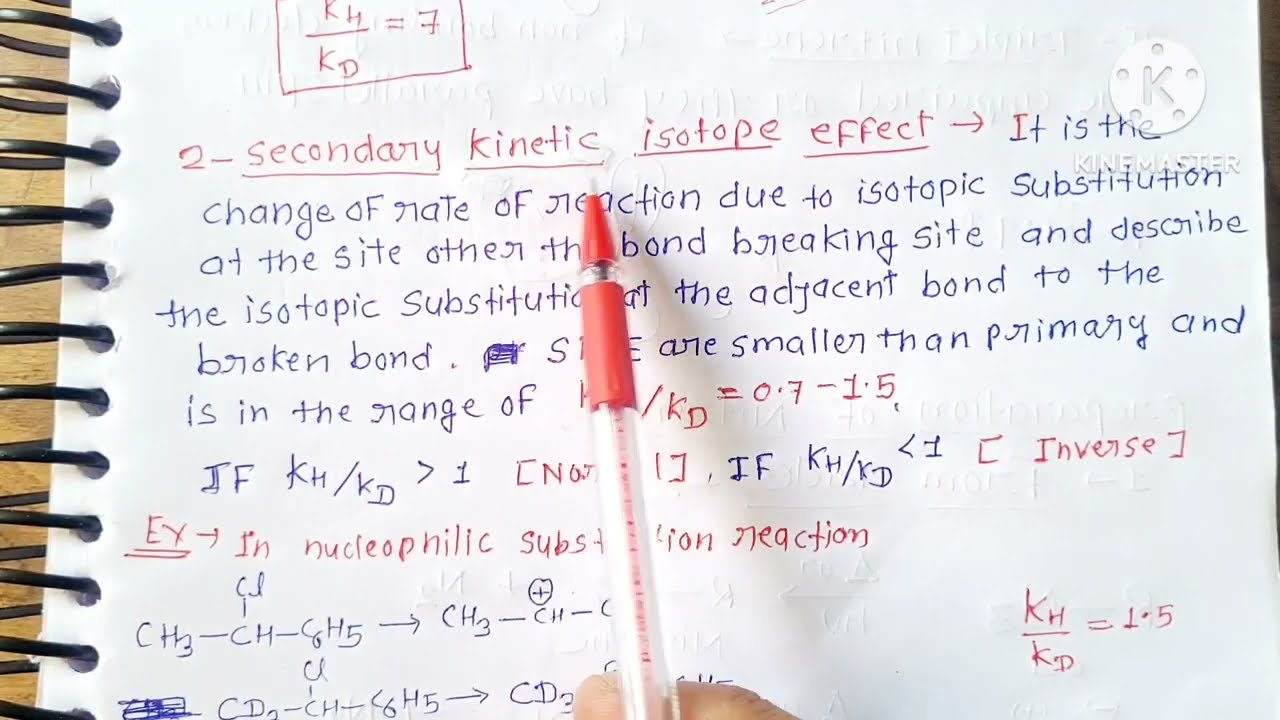 KH/KD = 7
K
KINEMASTER
2- Secondary kinetic isotope effect → It is the
change of rate of reaction due to isotopic substitution
at the site other bond breaking site and describe
the isotopic at the adjacent bond to the
broken bond. are smaller than primary and
is in the range of /KD = 0.7 - 1.5.
IF KH/KD > 1 [ ], IF KH/KD < 1 [ Inverse ]
EX → In nucleophilic reaction
Cl
CH3 - CH - C6H5 → CH3 - CH -
⊕
KH/KD = 1.5
Cl
CD3 - CH - C6H5 → CD3